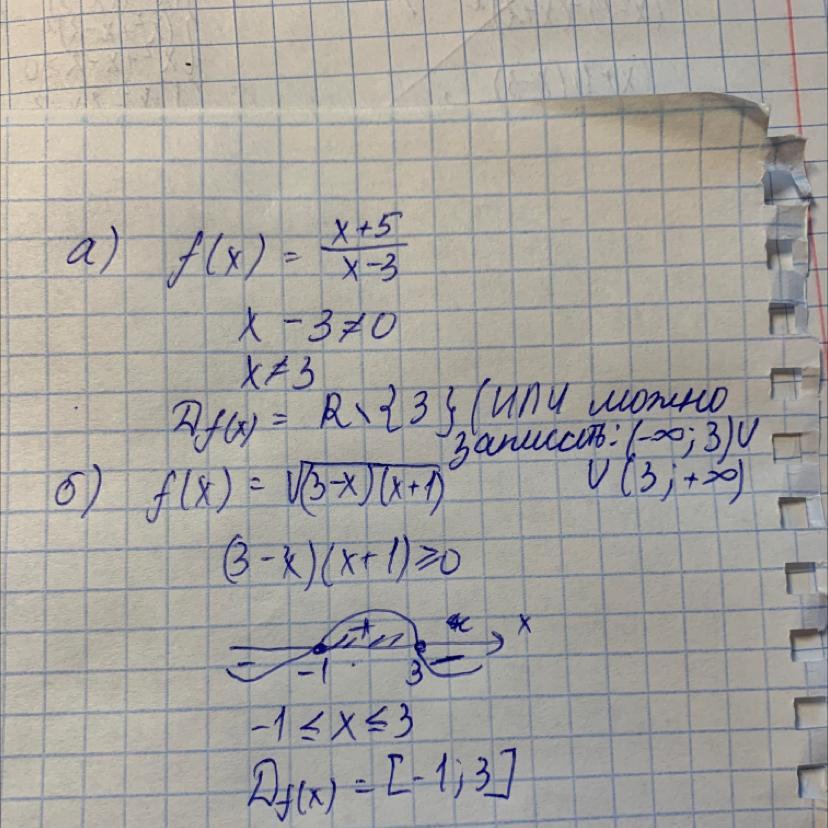 а) f(x) = (x+5)/(x-3)
x - 3 ≠ 0
x ≠ 3
D f(x) = R \ {3} (ИЛИ можно
записать: (-∞; 3) ∪
∪ (3; +∞)
б) f(x) = √(3-x)(x+1)
(3-x)(x+1) ≥ 0
- + - x
-1 3
-1 ≤ x ≤ 3
D f(x) = [-1; 3]